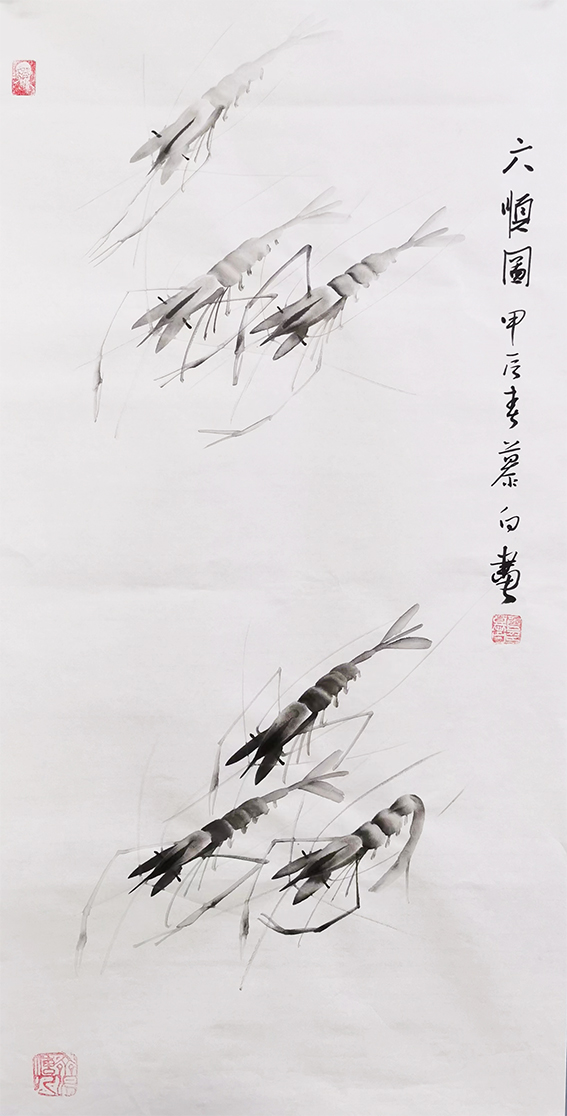 六順圖甲辰春慕白畫